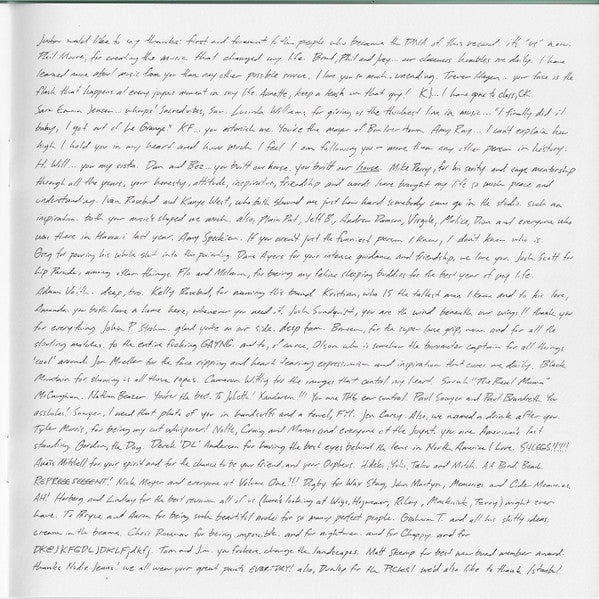 Justin would like to say thanks: first and foremost to the people who became the DNA of this record. it's "us" now.
Phil Moore, for creating the music that changed my life. Brad, Phil and Joey... our closeness humbles me daily. I have
learned more about music from you than any other possible source. I love you so much, unending. Trever Hagen... your face is the
flash that happens at every joyous moment in my life. Annette, keep a leash on that guy! KJ... I have gone to class, CK.
Sara Emma Jensen... whoops! Sacred vibes, Sav. Lucinda Williams for giving us the thickest line in music... "I finally did it
baby, I got out of La Grange". KF... you astonish me. You're the mayor of Bon Iver town. Amy Ray... I can't explain how
high I hold you in my heard and how much I feel I am following you - more than any other person in history.
H. Will... you my sista. Dan and Bez... you built our house. you built our house. Mike Perry, for his sanity and sage mentorship
through all the years, your honesty, attitude, inspiration, friendship and words have brought my life so much peace and
understanding. Ivan Rosebud and Kanye West, who both showed me just how hard somebody can go in the studio. such an
inspiration. both your music's shaped me much. also, Plain Pat, Jeff B, Andrew Dawson, Virgile, Malice, Don and everyone who
was there in Hawaii last year. Amy Speckien. If you aren't just the funniest person I know, I don't know who is.
Greg for pouring his whole shit into this painting. Dave Ayers for your intense guidance and friendship, we love you. Josh Scott for
Lip Parade, among other things. Flo and Melmon, for being my feline sleeping buddies for the best year of my life.
Adam Vo... deep, bro. Kelly Rosebud, for naming this band. Kristian, who IS the tallest man I know and to his love,
Amanda. you both have a home here, whenever you need it. Josh Sundquist, you are the wind beneath our wings!! thank you
for everything. John P. Strohm. glad you're on our side. deep team. Bonson, for the super love grip, now. and for all the
shouting matches. to the entire fucking GAYNG. and to, of course, Olson who is somehow the barometer captain for all things
'cool' around. Jon Mueller for the face ripping and heart tearing expressionism and inspiration that cures me daily. Black
Mountain for showing us all those ropes. Cameron Wittig for the images that control my heart. Sarah "The Real Mama"
McCaughan. Nathan Beazer. You're the best. To Jwlhyfer! Xandersen!!! You are THE ear control. Paul Sawyer and Paul Brandreth. You
assholes! Sawyer, I need that photo of you in handcuffs and a towel, FYI. Jen Carey. Also, we named a drink after you
Tyler Morris, for being my cut whisperer! Nolte, Craig and Mames and everyone at the Joynt. you are America's last
standing. Gordon, the Dog. Derek 'DL' Anderson for having the best eyes behind the lens in North America! Love. SHLEGS!!!!!
Anaïs Mitchell for your spirit and for the chance to be your friend, and your Orpheus. Hikibi, Yuki, Taku and Mitsh. AA Bondy. Bomb.
REPREEEEEEEENT! Nick Meyer and everyone at Volume One!!! Rigby for Wax Stag, John Martyn, Memories and Cole Memories.
AH! Herberg and Lindsay for the best reunion all of us (here's looking at Wigs, Hagmeier, Riley, Mackenick, Terry) might ever
have. To Bryce and Aaron for being such beautiful anchors for so many perfect people. Graham T. and all his shitty ideas.
cream in the beams. Chris Rosenau for being impossible. and for nightmen. and for Choppy. and for
DK@JKFGPLJDKLFjdkfj. Tom and Jim. you fuckers change the landscapes. Matt Skemp for best new band member award.
thanks Nudie Jeans! we all wear your great pants EVERYDAY! also, Dunlop for the PICKS! we'd also like to thank Istanbul